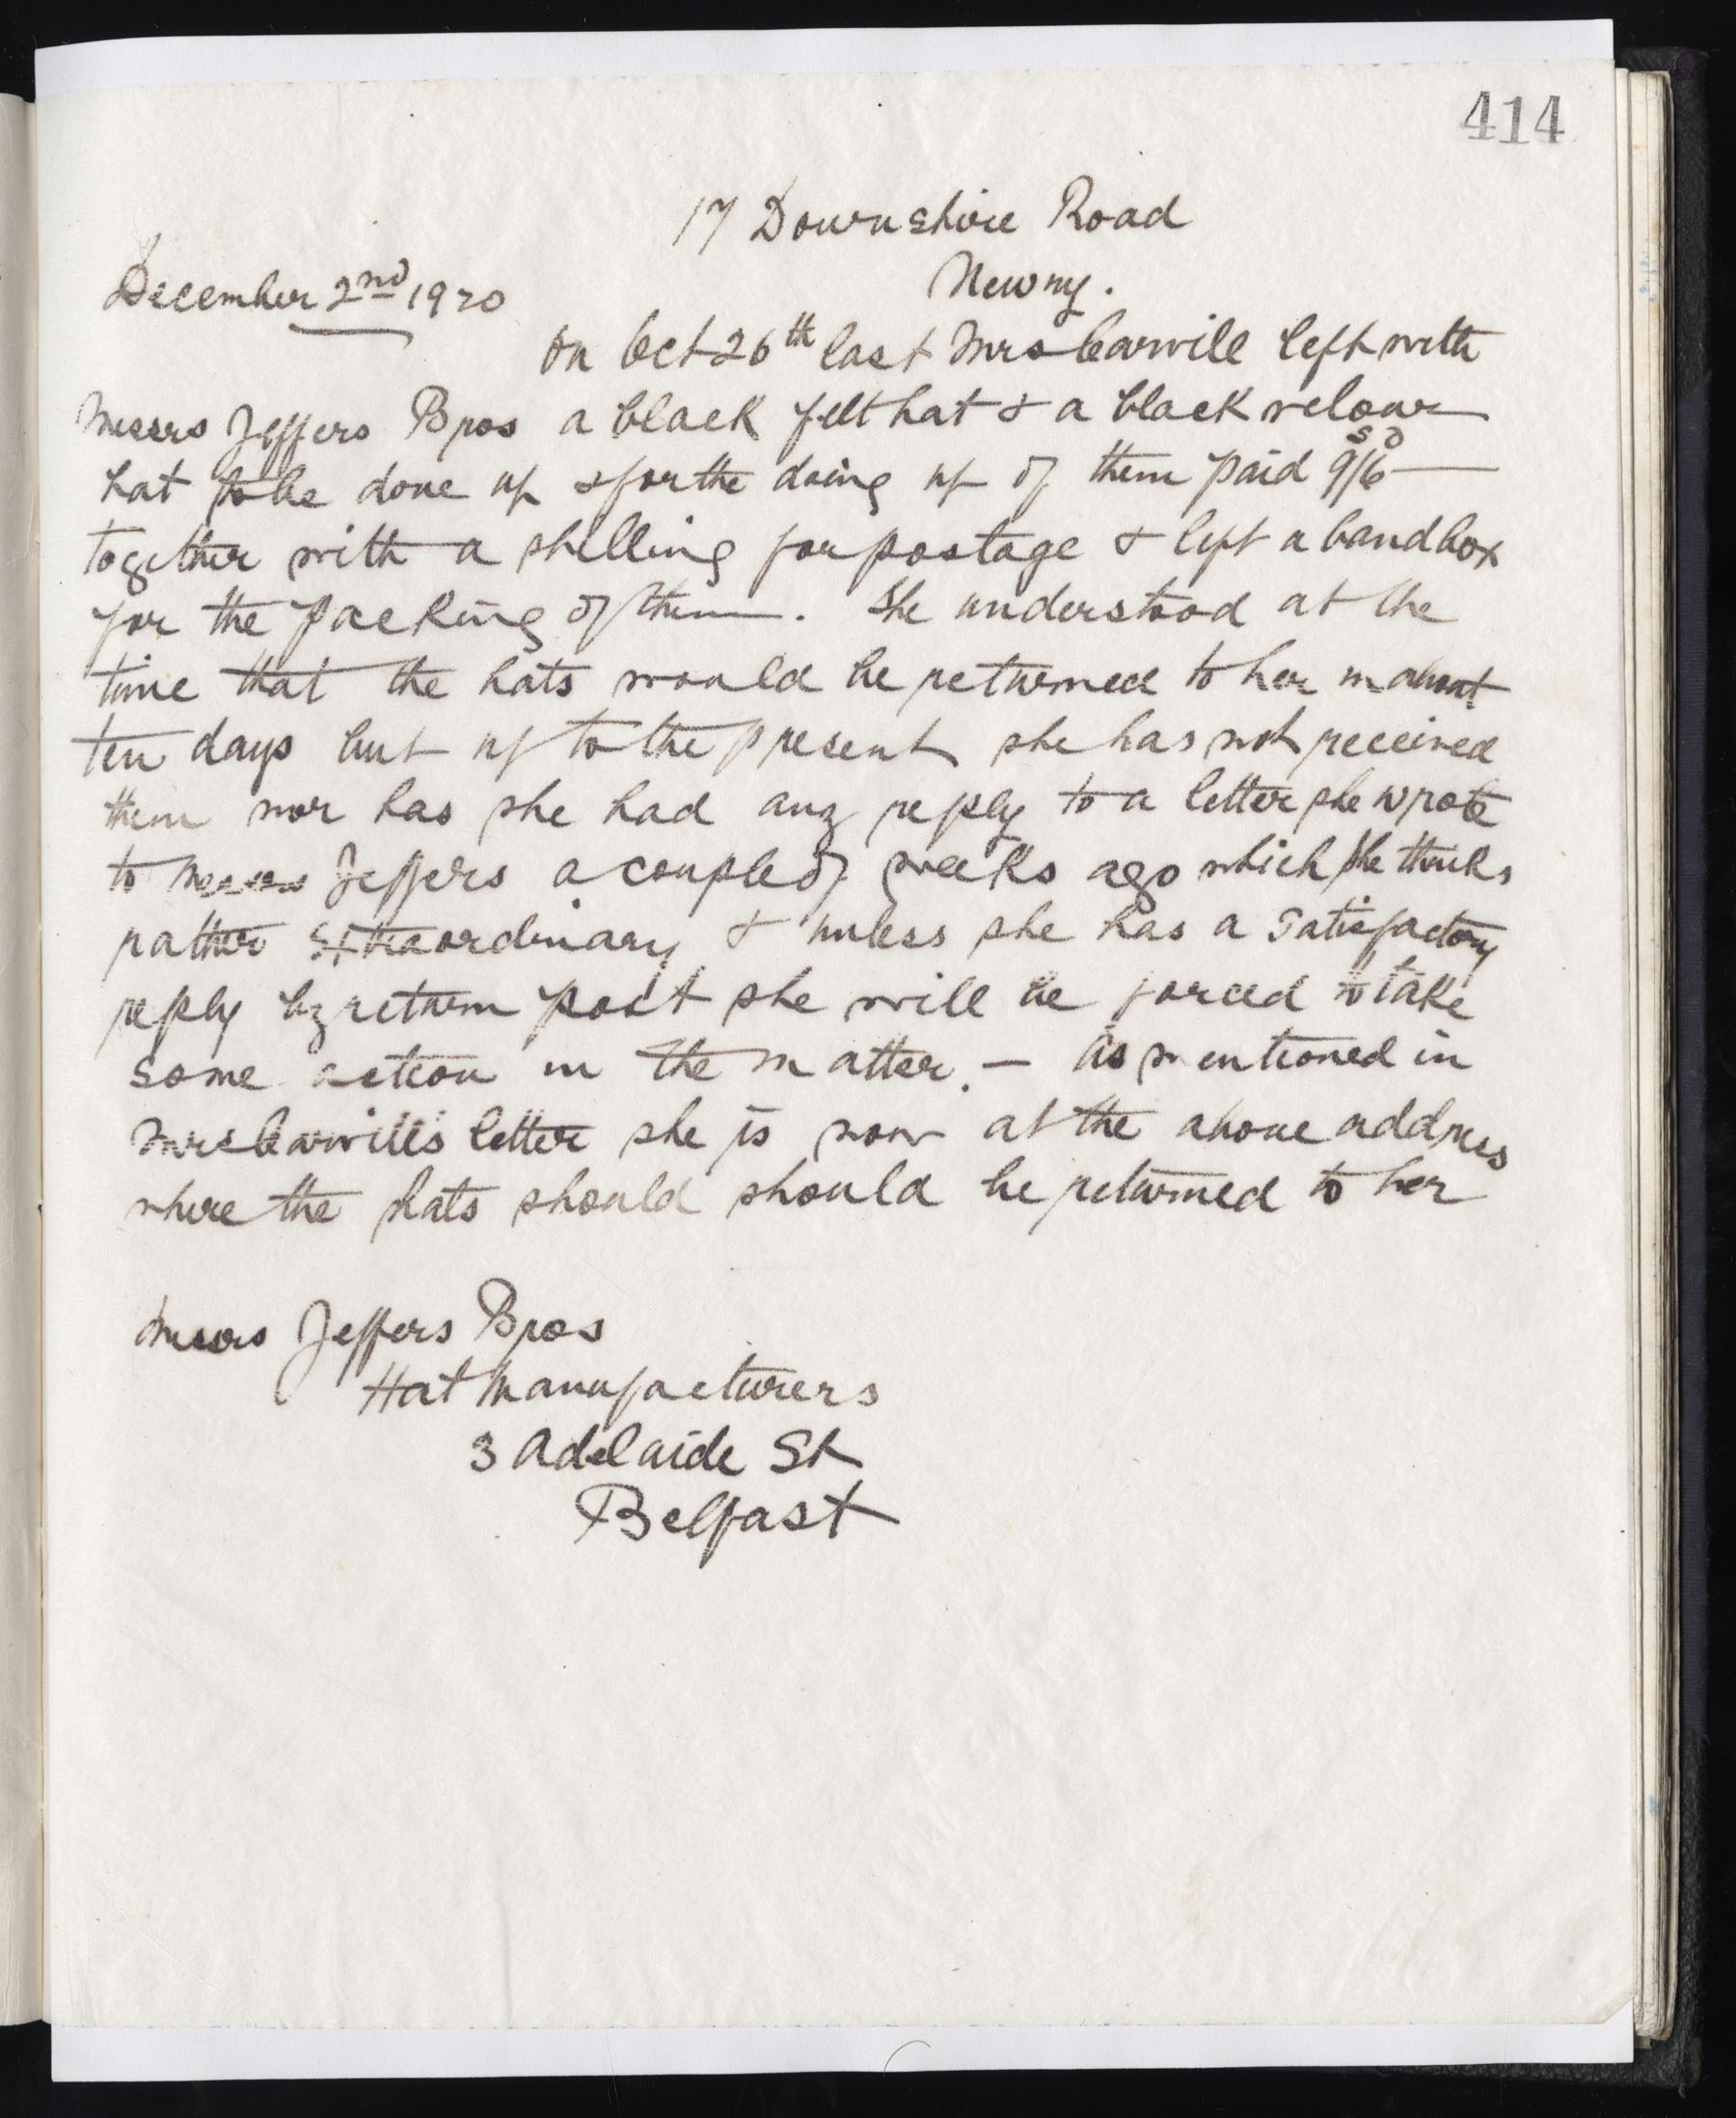 414
17 Downshire Road
Newry.
December 2nd 1920
On Oct 26th last Mrs Carvill left with
Messrs Jeffers Bros a black felt hat & a black velour
hat to be done up & for the doing up of them paid 9s/6d
together with a shilling for postage & left a bandbox
for the packing of them. She understood at the
time that the hats would be returned to her in about
ten days but up to the present she has not received
them nor has she had any reply to a letter she wrote
to Messrs Jeffers a couple of weeks ago which she thinks
rather extraordinary & unless she has a satisfactory
reply by return post she will be forced to take
some action in the matter. — As mentioned in
Mrs Carvill's letter she is now at the above address
where the hats should should be returned to her
Messrs Jeffers Bros
Hat Manufacturers
3 Adelaide St
Belfast